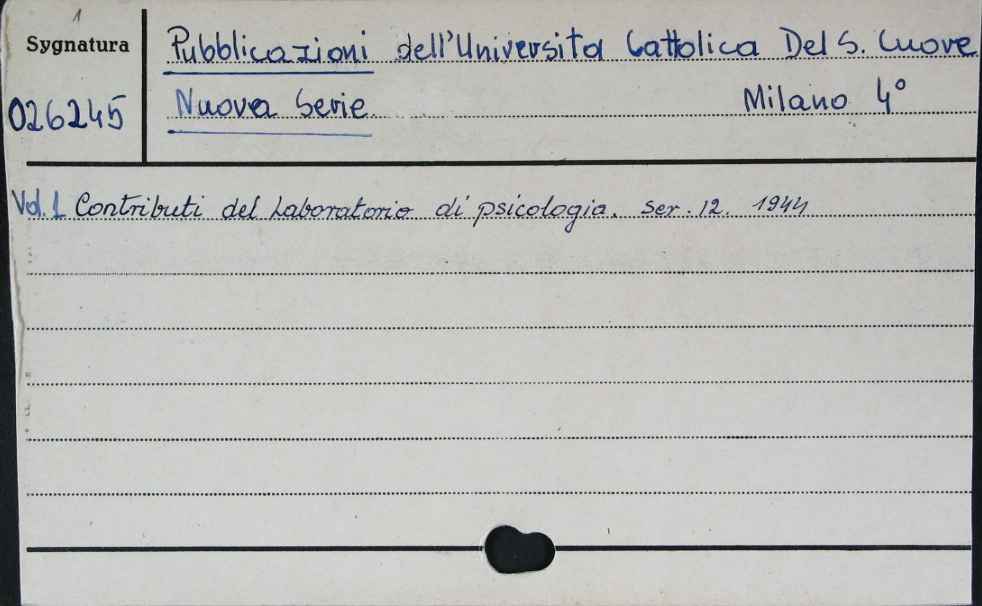 1
Sygnatura
026245
Pubblicazioni dell'Universita Cattolica Del S. Cuore
Nuova Serie Milano 4°
Vol. 1 Contributi del Laboratorio di psicologia. Ser. 12. 1944